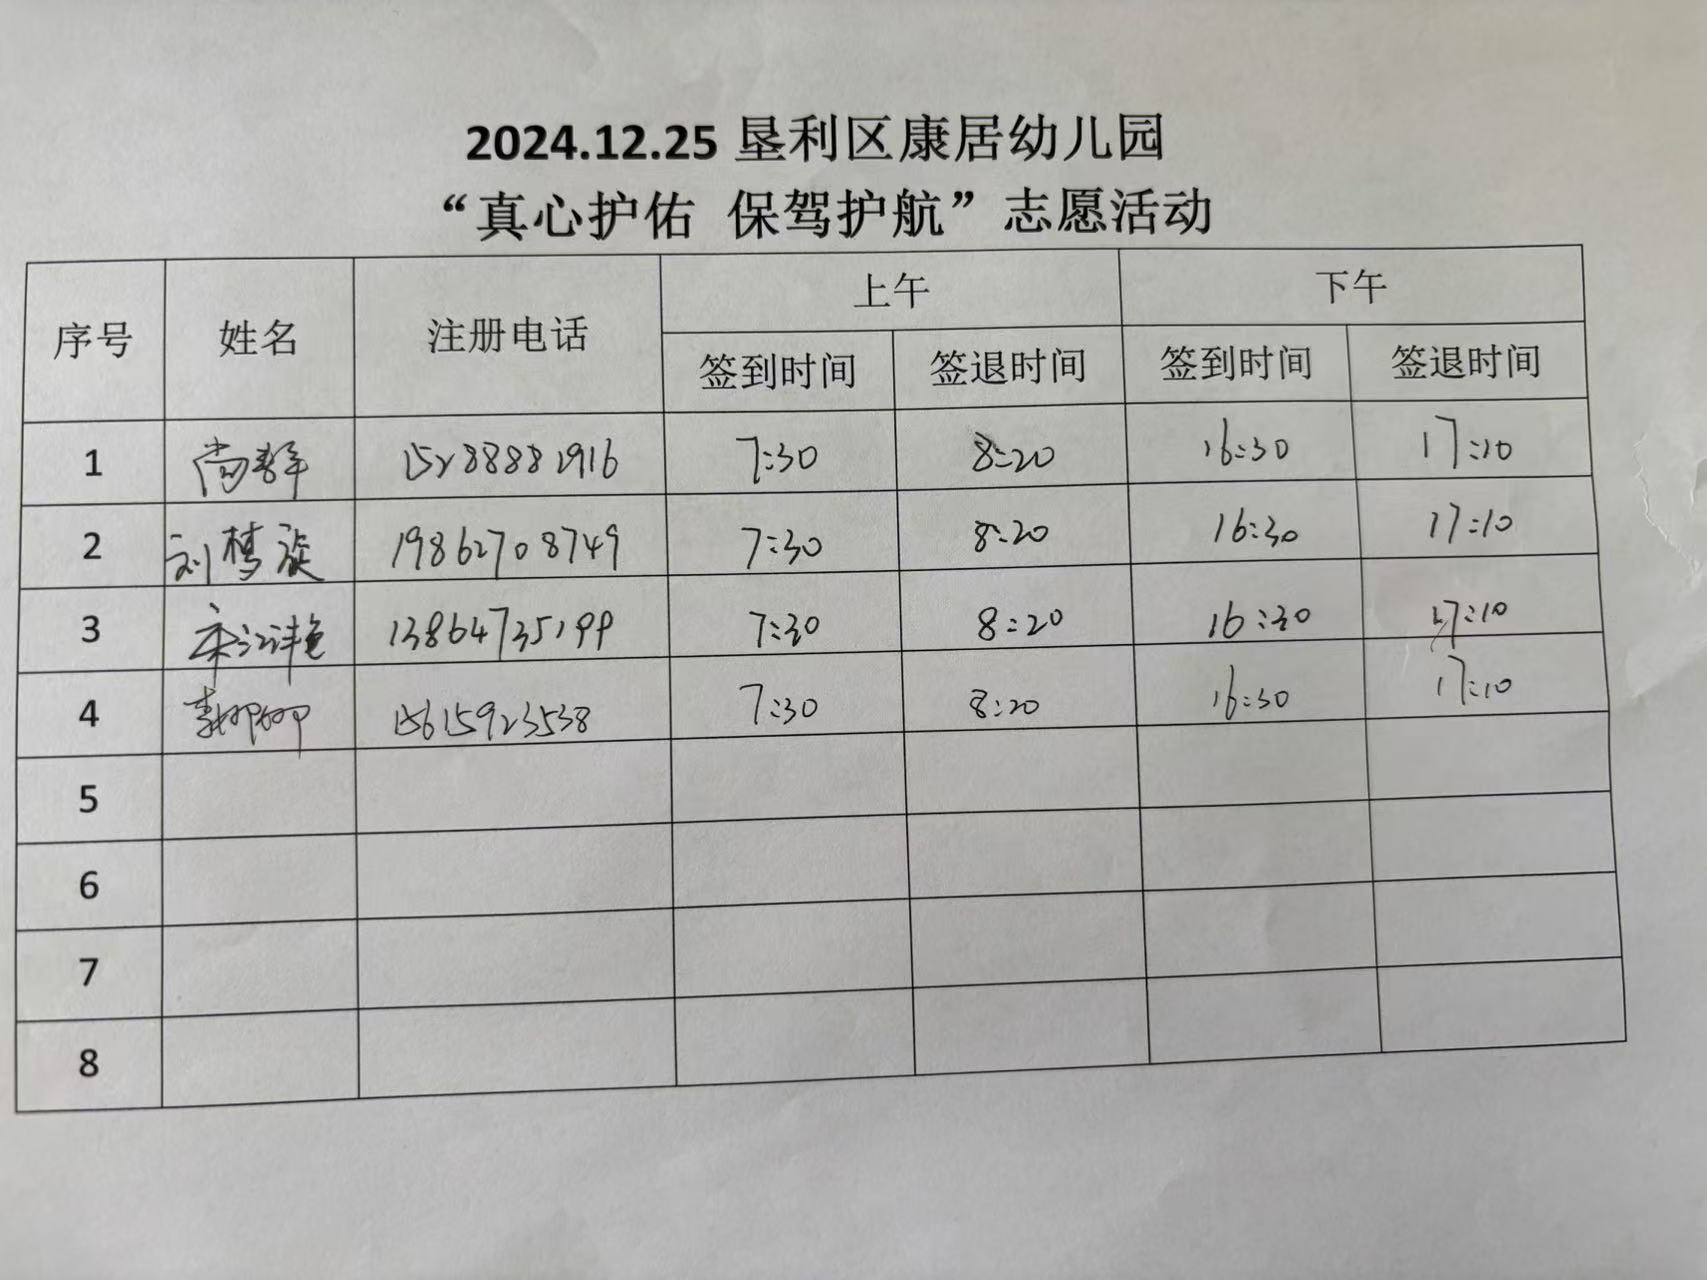 2024.12.25 垦利区康居幼儿园
“真心护佑 保驾护航”志愿活动
序号 姓名 注册电话 上午 下午
签到时间 签退时间 签到时间 签退时间
1 15288881916 7:30 8:20 16:30 17:10
2 刘梦旋 19862708749 7:30 8:20 16:30 17:10
3 13864735199 7:30 8:20 16:30 17:10
4 15615923538 7:30 8:20 16:30 17:10
5
6
7
8